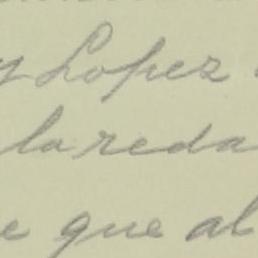 y Lopez
la reda
e que al